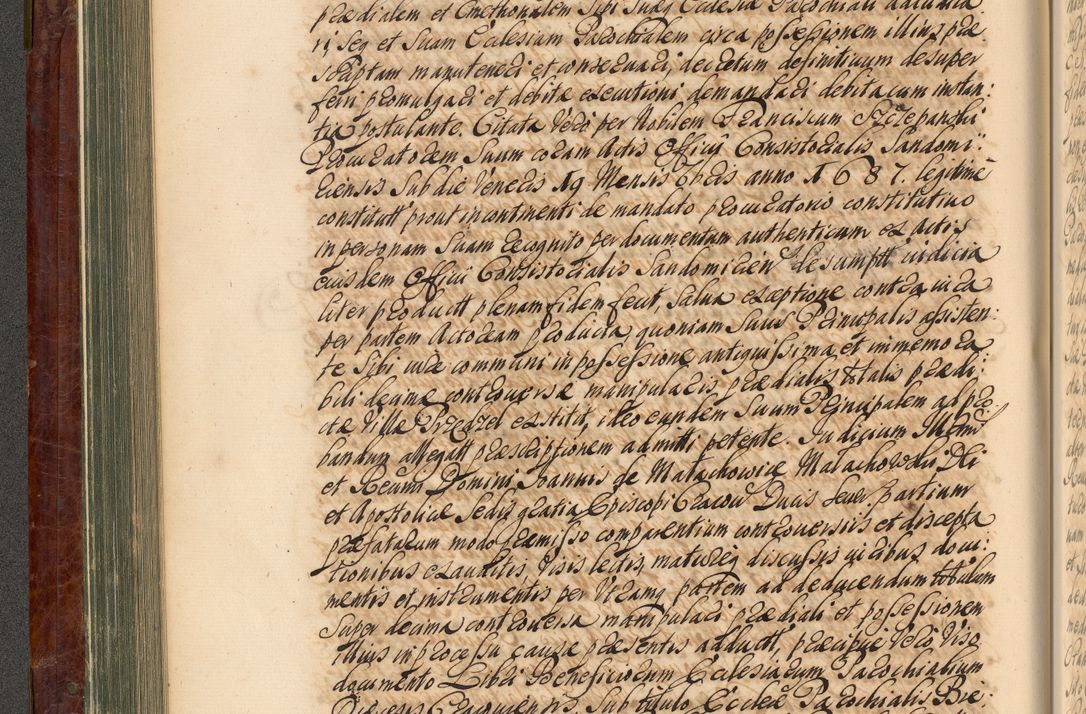 prædialem et Cmethonalem Sibi Suæq Ecclesiæ Parochiali
ri, Seq et Suam Ecclesiam Parochialem circa possessionem illius præ
scriptam manuteneri et conservari, decretum definitivum desuper
ferri promulgari et debitæ executioni demandari debita cum instan:
tia postulante. Citata Vero per Nobilem Franciscum Szczepanski
Procuratorem Suum coram Actis Officii Consistorialis Sandomi:
riensis Sub die Veneris 19 Mensis 7bris anno 1687. legitime
constitutt prout in continenti de mandato procuratorio constitutivo
in personam Suam recognito per documentum authenticum ex Actis
eiusdem Officii Consistorialis Sandomirien desumptt iudicia
liter productt plenam fidem fecit, Salva exceptione contra iura
per partem Actoream producta, quoniam Suus Principalis assisten:
te Sibi iure communi in possessione antiquissima et immemora
bili decimæ controversæ manipularis prædialis totalis prædi:
ctæ Villæ Przedzel extitit, ideo eundem Suum Principalem ad pro:
bandum allegatt præscriptionem admitti petente. Iudicium Illmi
et Rndmi Domini Joannis de Malachowice Malachowski Dei
et Apostolicæ Sedis gratia Episcopi Cracov Ducis Sever partium
præfatarum modo præmisso comparentium controversiis et discepta
tionibus exauditis, Visis lectis, matureq discussis iuribus docu:
mentis et instrumentis per Utramq partem ad deducendum titulum
Super decima controversa manipulari prædiali et possessionem
illius in processu causæ præsentis adductt, præcipue Vero, Viso
documento Libri Beneficiorum Ecclesiarum Parochialium
Diœcesis Cracoviensis, Sub titulo Ecclæ Parochialis Bie: